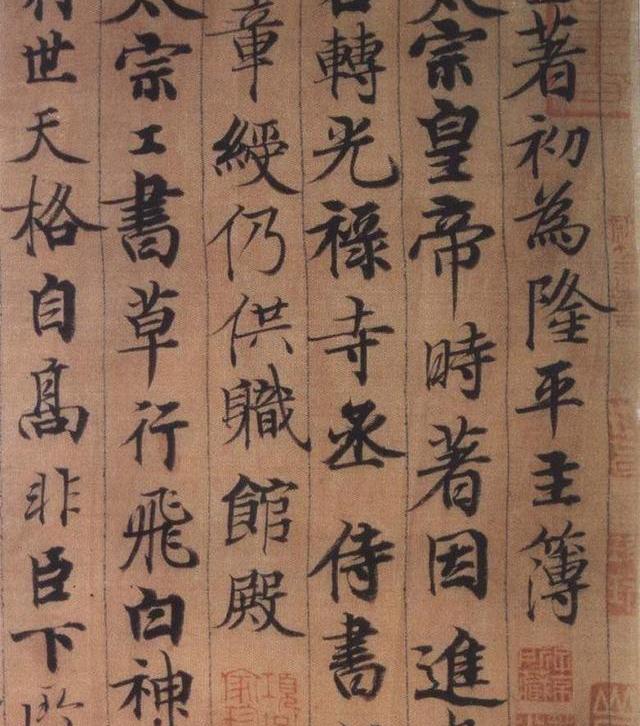 著初為隆平主簿
太宗皇帝時著因進
轉光祿寺丞侍書
章綬仍供職館殿
太宗工書草行飛白神
世天格自高非臣下